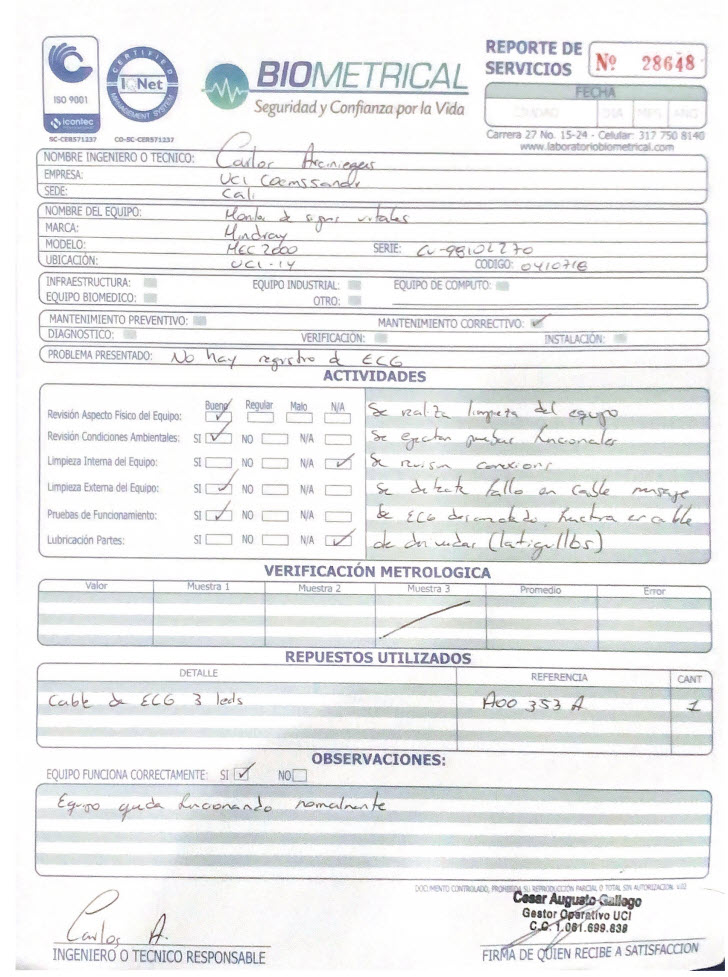 ISO 9001
icontec
SC-CER571237
CERTIFIED
IQNet
MANAGEMENT SYSTEM
CO-SC-CER571237
BIOMETRICAL
Seguridad y Confianza por la Vida
REPORTE DE SERVICIOS
Nº 28648
FECHA
CIUDAD DIA MES AÑO
Carrera 27 No. 15-24 - Celular: 317 750 8140
www.laboratoriobiometrical.com
NOMBRE INGENIERO O TECNICO: Carlos Arciniegas
EMPRESA: UCI
SEDE: Cali
NOMBRE DEL EQUIPO: Monitor de signos vitales
MARCA: Mindray
MODELO: MEC 2000 SERIE: CV-98102270
UBICACIÓN: UCI-14 CODIGO: 0410718
INFRAESTRUCTURA: EQUIPO INDUSTRIAL: EQUIPO DE COMPUTO:
EQUIPO BIOMEDICO: OTRO:
MANTENIMIENTO PREVENTIVO: MANTENIMIENTO CORRECTIVO: ✓
DIAGNOSTICO: VERIFICACIÓN: INSTALACIÓN:
PROBLEMA PRESENTADO: No hay registro de ECG
ACTIVIDADES
Bueno Regular Malo N/A
Revisión Aspecto Físico del Equipo: ✓
Revisión Condiciones Ambientales: SI ✓ NO N/A
Limpieza Interna del Equipo: SI NO N/A ✓
Limpieza Externa del Equipo: SI ✓ NO N/A
Pruebas de Funcionamiento: SI ✓ NO N/A
Lubricación Partes: SI NO N/A ✓
Se realiza limpieza del equipo
Se ejecutan pruebas funcionales
Se revisan conexiones
Se detecta fallo en cable
de ECG en cable
de derivadas (latiguillos)
VERIFICACIÓN METROLOGICA
Valor Muestra 1 Muestra 2 Muestra 3 Promedio Error
REPUESTOS UTILIZADOS
DETALLE REFERENCIA CANT
Cable de ECG 3 leds A00 353 A 1
OBSERVACIONES:
EQUIPO FUNCIONA CORRECTAMENTE: SI ✓ NO
Equipo queda funcionando normalmente
DOCUMENTO CONTROLADO, PROHIBIDA SU REPRODUCCIÓN PARCIAL O TOTAL SIN AUTORIZACIÓN. V.02
Carlos A.
INGENIERO O TECNICO RESPONSABLE
Cesar Augusto Gallego
Gestor Operativo UCI
C.C. 1.061.699.838
FIRMA DE QUIEN RECIBE A SATISFACCION